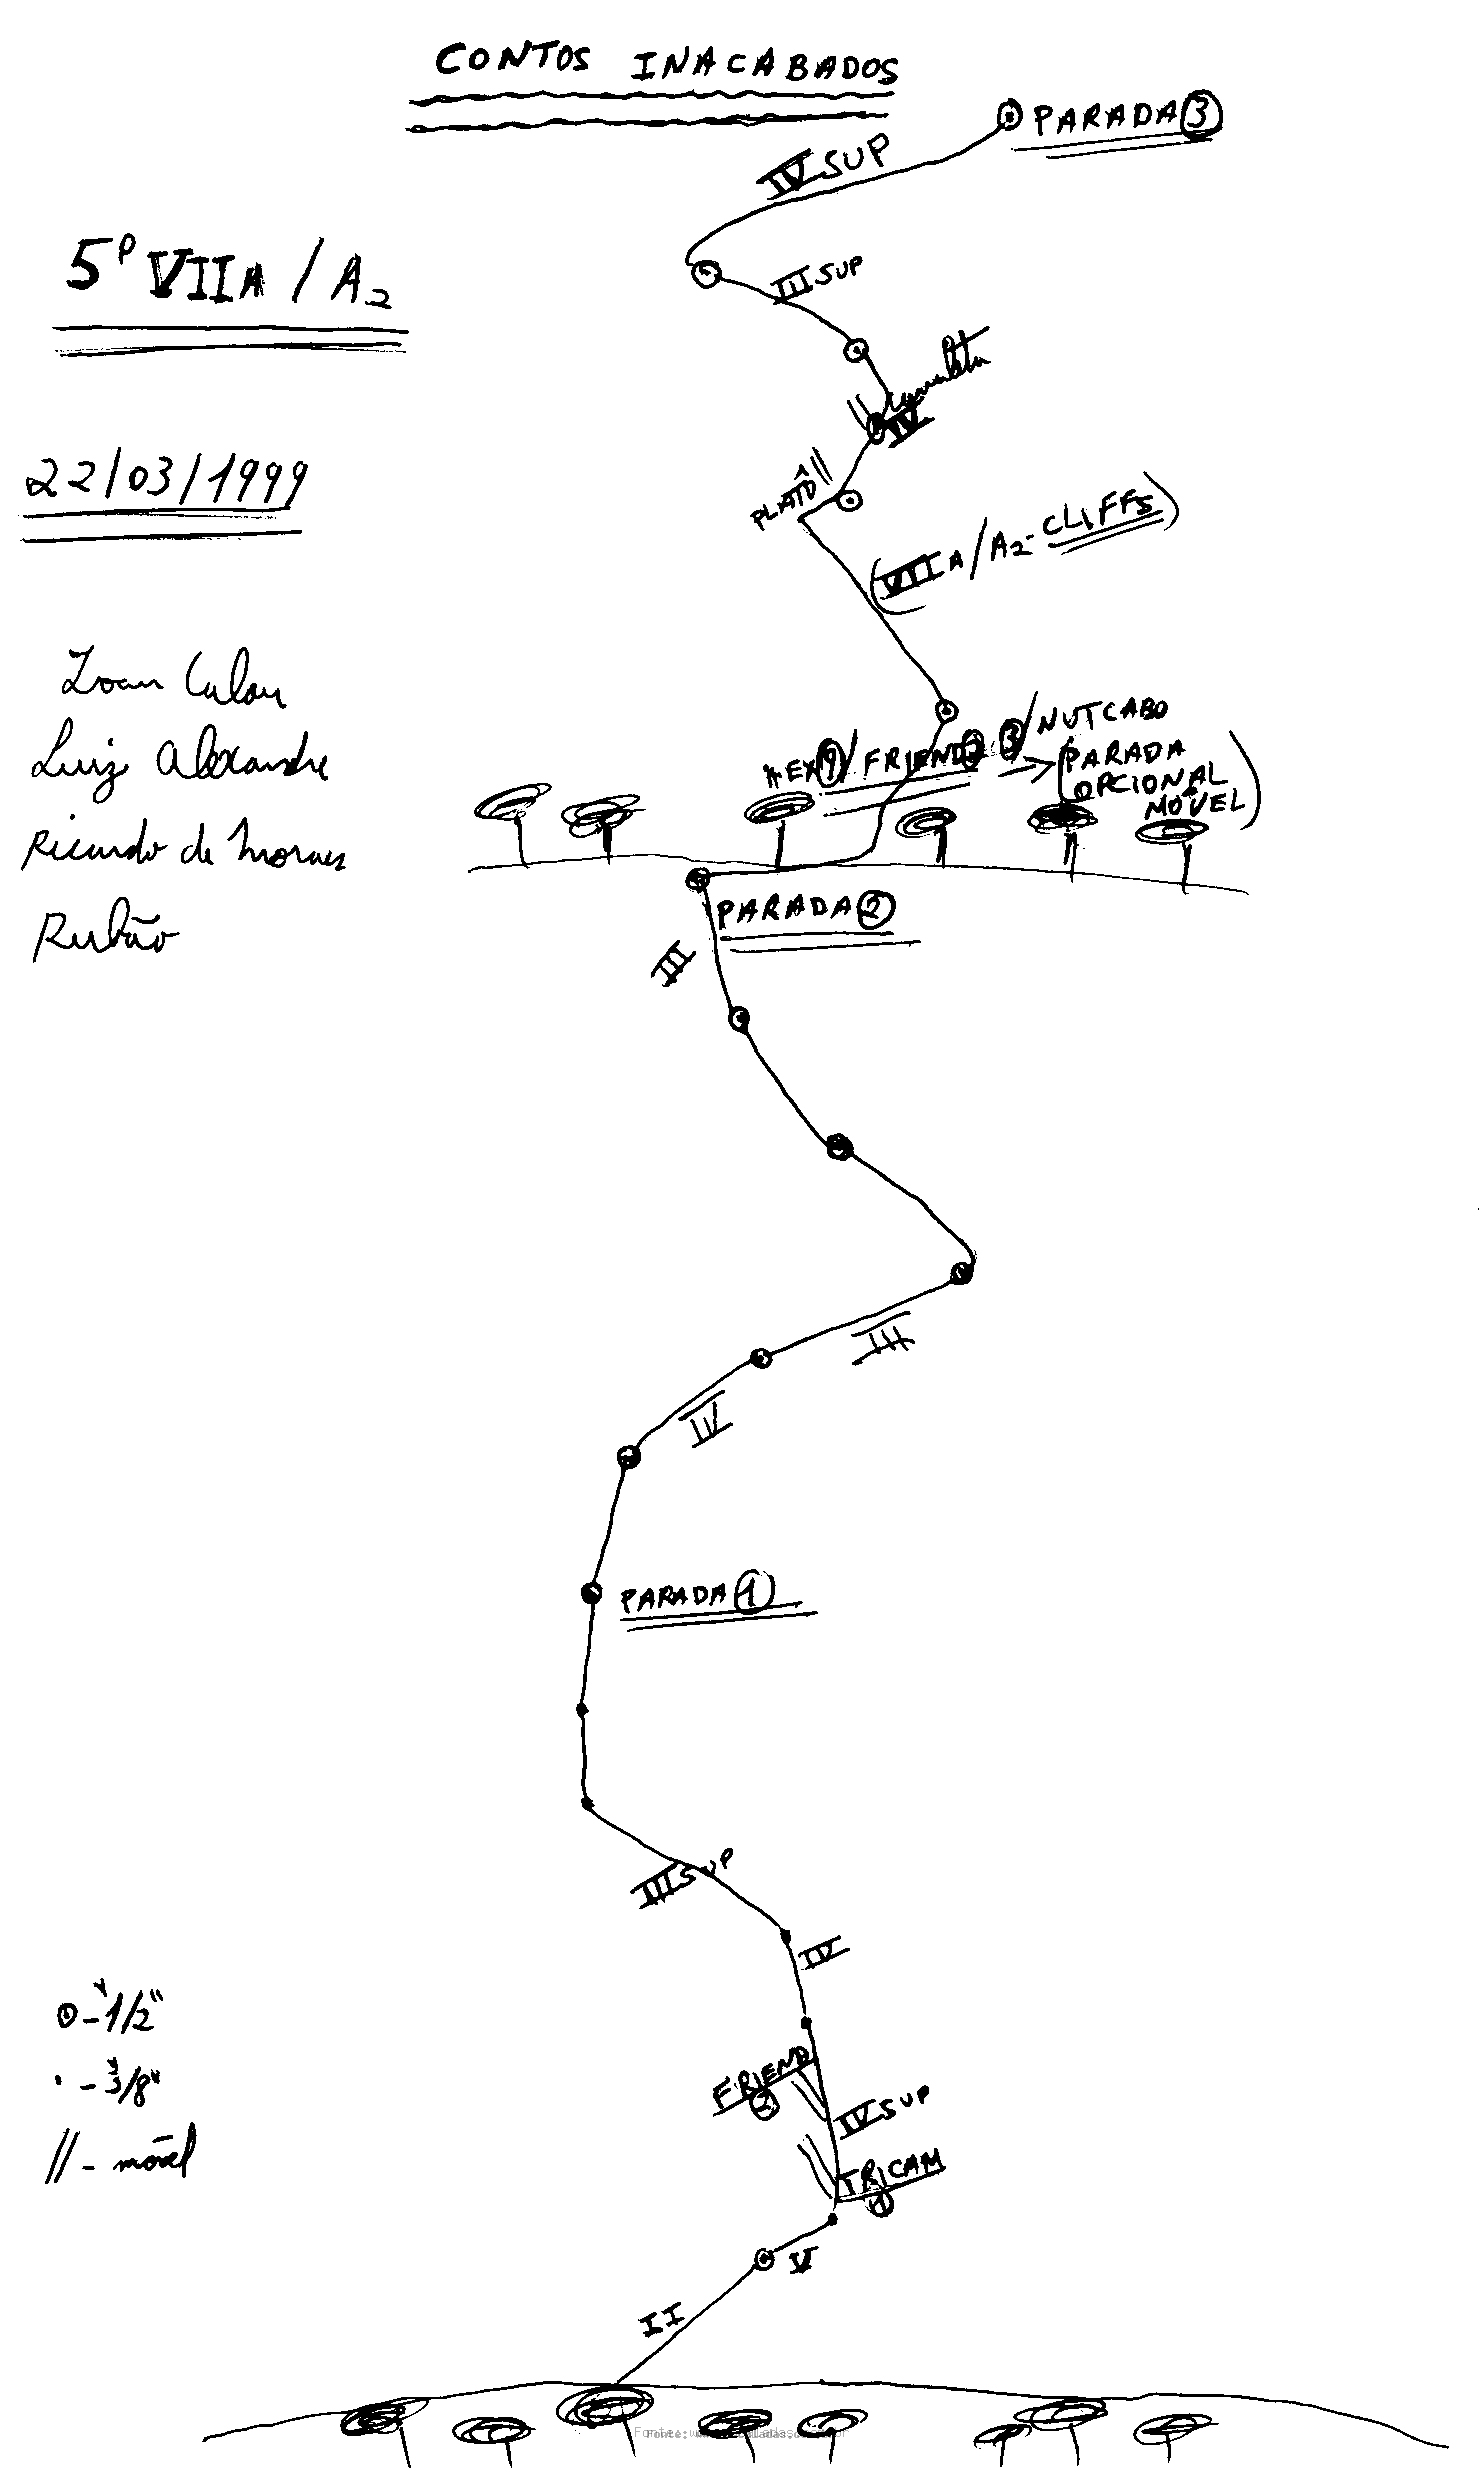 CONTOS INACABADOS
PARADA 3
IV SUP
5º VIIA / A2
III SUP
IV
22/03/1999
PLATÔ
(VIIA/A2-CLIFFS)
Luiz Alexandre
HEX 9/FRIEND 2 3/NUTCABO
(PARADA
OPCIONAL
MÓVEL)
Ricardo de Moraes
PARADA 2
Rubão
III
III
IV
PARADA 1
III SUP
IV
⊙ - 1/2"
· - 3/8"
// - móvel
FRIEND
2
IV SUP
TRICAM
1
V
II